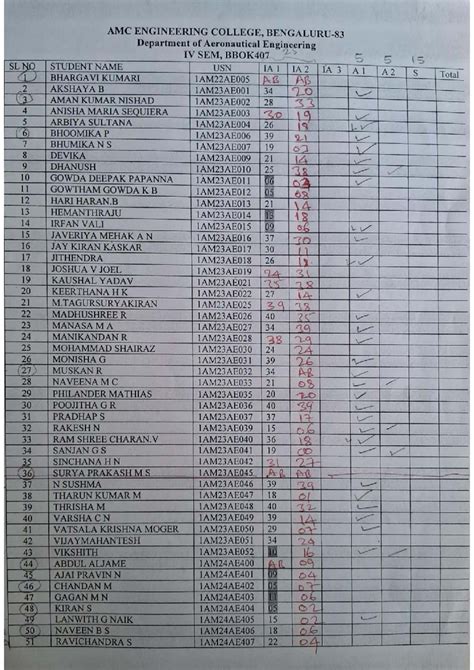 AMC ENGINEERING COLLEGE, BENGALURU-83
Department of Aeronautical Engineering
IV SEM, BBOK407
5 5 15
SL NO STUDENT NAME USN IA 1 IA 2 IA 3 A 1 A 2 S Total
1 BHARGAVI KUMARI 1AM22AE005 AB AB
2 AKSHAYA B 1AM23AE001 34 20
3 AMAN KUMAR NISHAD 1AM23AE002 28 33
4 ANISHA MARIA SEQUIERA 1AM23AE003 30 19
5 ARBIYA SULTANA 1AM23AE004 26 18
6 BHOOMIKA P 1AM23AE006 39 21
7 BHUMIKA N S 1AM23AE007 19 03
8 DEVIKA 1AM23AE009 21 14
9 DHANUSH 1AM23AE010 25 38
10 GOWDA DEEPAK PAPANNA 1AM23AE011 06
11 GOWTHAM GOWDA K B 1AM23AE012 05 08
12 HARI HARAN.B 1AM23AE013 21 14
13 HEMANTHRAJU 1AM23AE014 18
14 IRFAN VALI 1AM23AE015 09 06
15 JAVERIYA MEHAK A N 1AM23AE016 37 30
16 JAY KIRAN KASKAR 1AM23AE017 30 11
17 JITHENDRA 1AM23AE018 26
18 JOSHUA V JOEL 1AM23AE019 24 31
19 KAUSHAL YADAV 1AM23AE021 38
20 KEERTHANA H K 1AM23AE022 27 14
21 M.TAGURSURYAKIRAN 1AM23AE025 39 38
22 MADHUSHREE R 1AM23AE026 40
23 MANASA M A 1AM23AE027 34 39
24 MANIKANDAN R 1AM23AE028 38 29
25 MOHAMMAD SHAIRAZ 1AM23AE030 24 24
26 MONISHA G 1AM23AE031 36 26
27 MUSKAN R 1AM23AE032 34 AB
28 NAVEENA M C 1AM23AE033 21 08
29 PHILANDER MATHIAS 1AM23AE035 20 20
30 POOJITHA G R 1AM23AE036 40 39
31 PRADHAP S 1AM23AE037 37 17
32 RAKESH N 1AM23AE039 15 06
33 RAM SHREE CHARAN.V 1AM23AE040 36 18
34 SANJAN G S 1AM23AE041 19 00
35 SINCHANA H N 1AM23AE042 31 27
36 SURYA PRAKASH M S 1AM23AE045 AB AB
37 N SUSHMA 1AM23AE046 39 39
38 THARUN KUMAR M 1AM23AE047 18 01
39 THRISHA M 1AM23AE048 40 32
40 VARSHA C N 1AM23AE049 39 14
41 VATSALA KRISHNA MOGER 1AM23AE050 29 07
42 VIJAYMAHANTESH 1AM23AE051 34 24
43 VIKSHITH 1AM23AE052 10 16
44 ABDUL ALJAME 1AM24AE400 AB 09
45 AJAI PRAVIN N 1AM24AE401 09 04
46 CHANDAN M 1AM24AE402 05 07
47 GAGAN M N 1AM24AE403 06
48 KIRAN S 1AM24AE404 05 02
49 LANWITH G NAIK 1AM24AE405 15 02
50 NAVEEN B S 1AM24AE406 18 06
51 RAVICHANDRA S 1AM24AE407 22 04